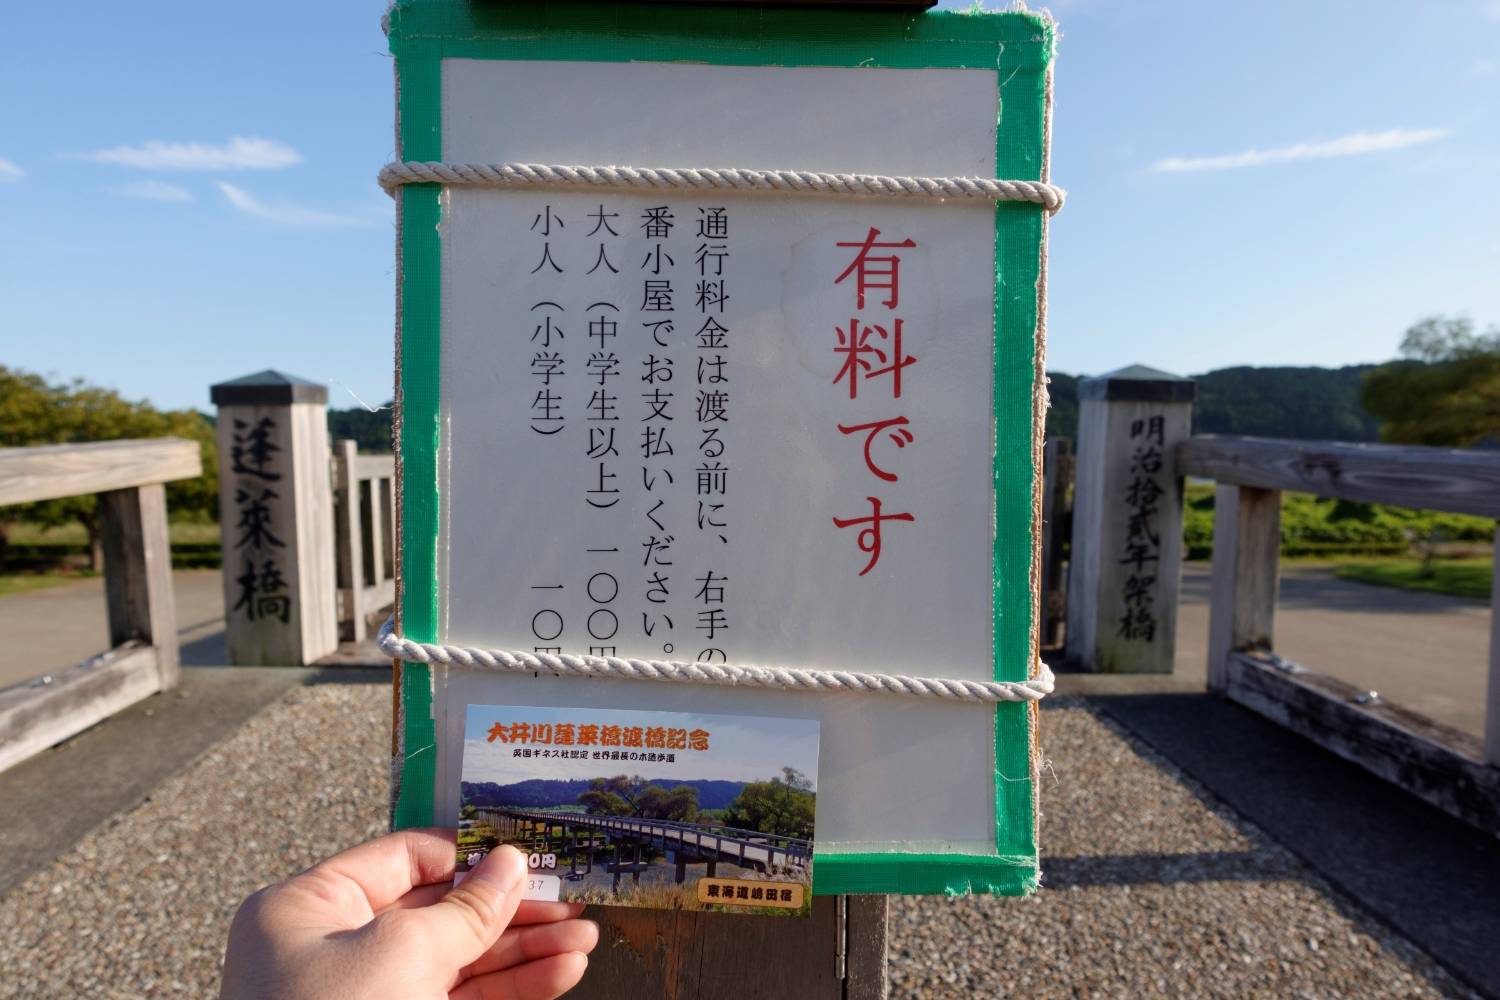 有料です
通行料金は渡る前に、右手の
番小屋でお支払いください。
大人（中学生以上）　一〇〇円
小人（小学生）　一〇円
蓬萊橋
明治拾貳年架橋
大井川蓬莱橋渡橋記念
英国ギネス社認定 世界最長の木造歩道
0円
37
東海道嶋田宿